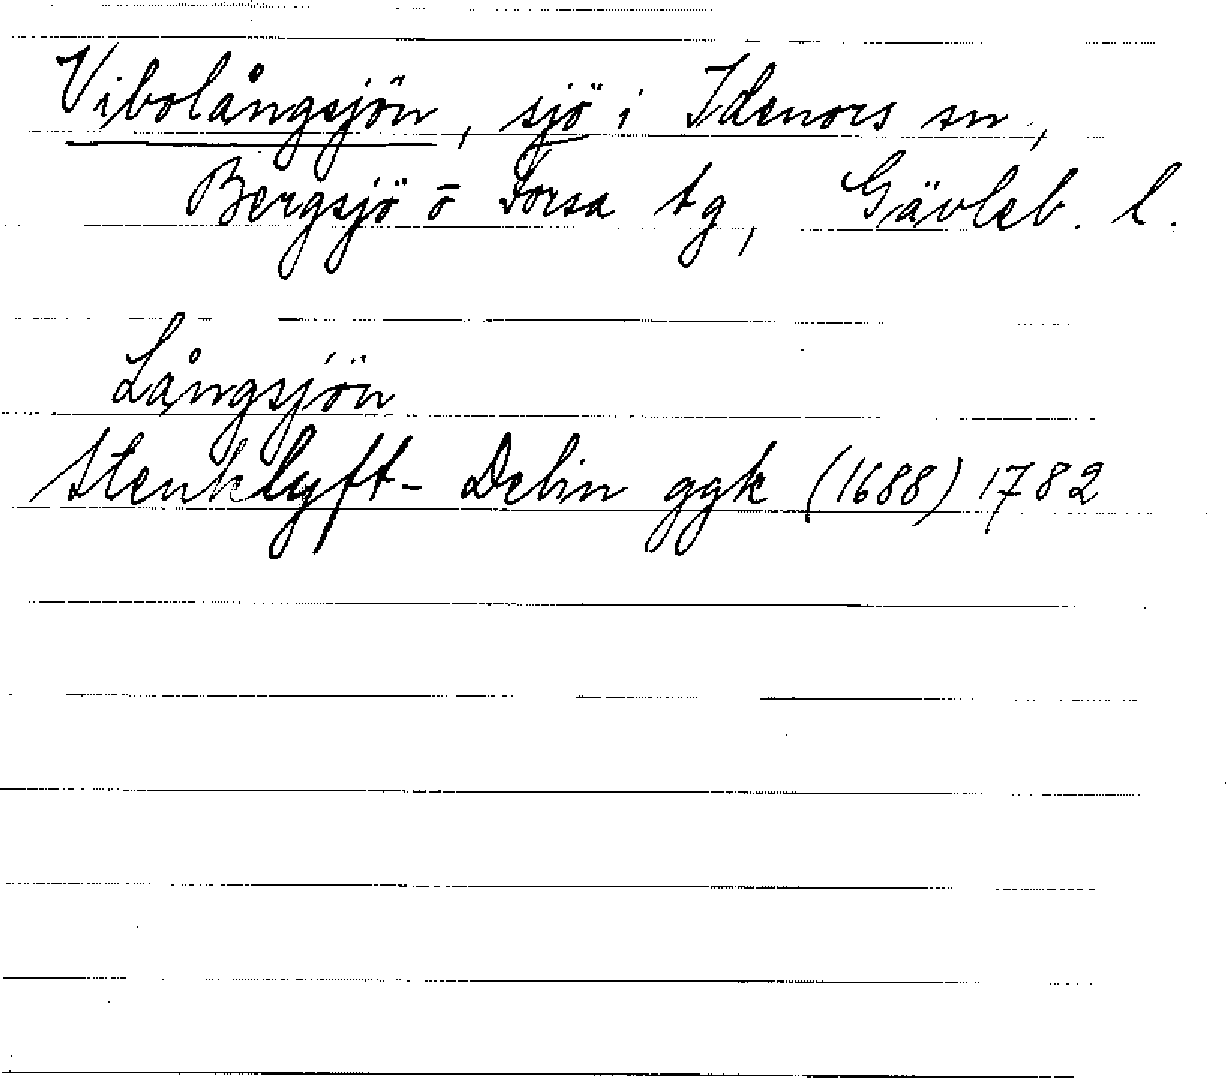 Vibolångsjön, sjö i Idenors sn,
Bergsjö o Forsa tg, Gävleb. l.
Långsjön
Stenklyft- Delin ggk (1688) 1782